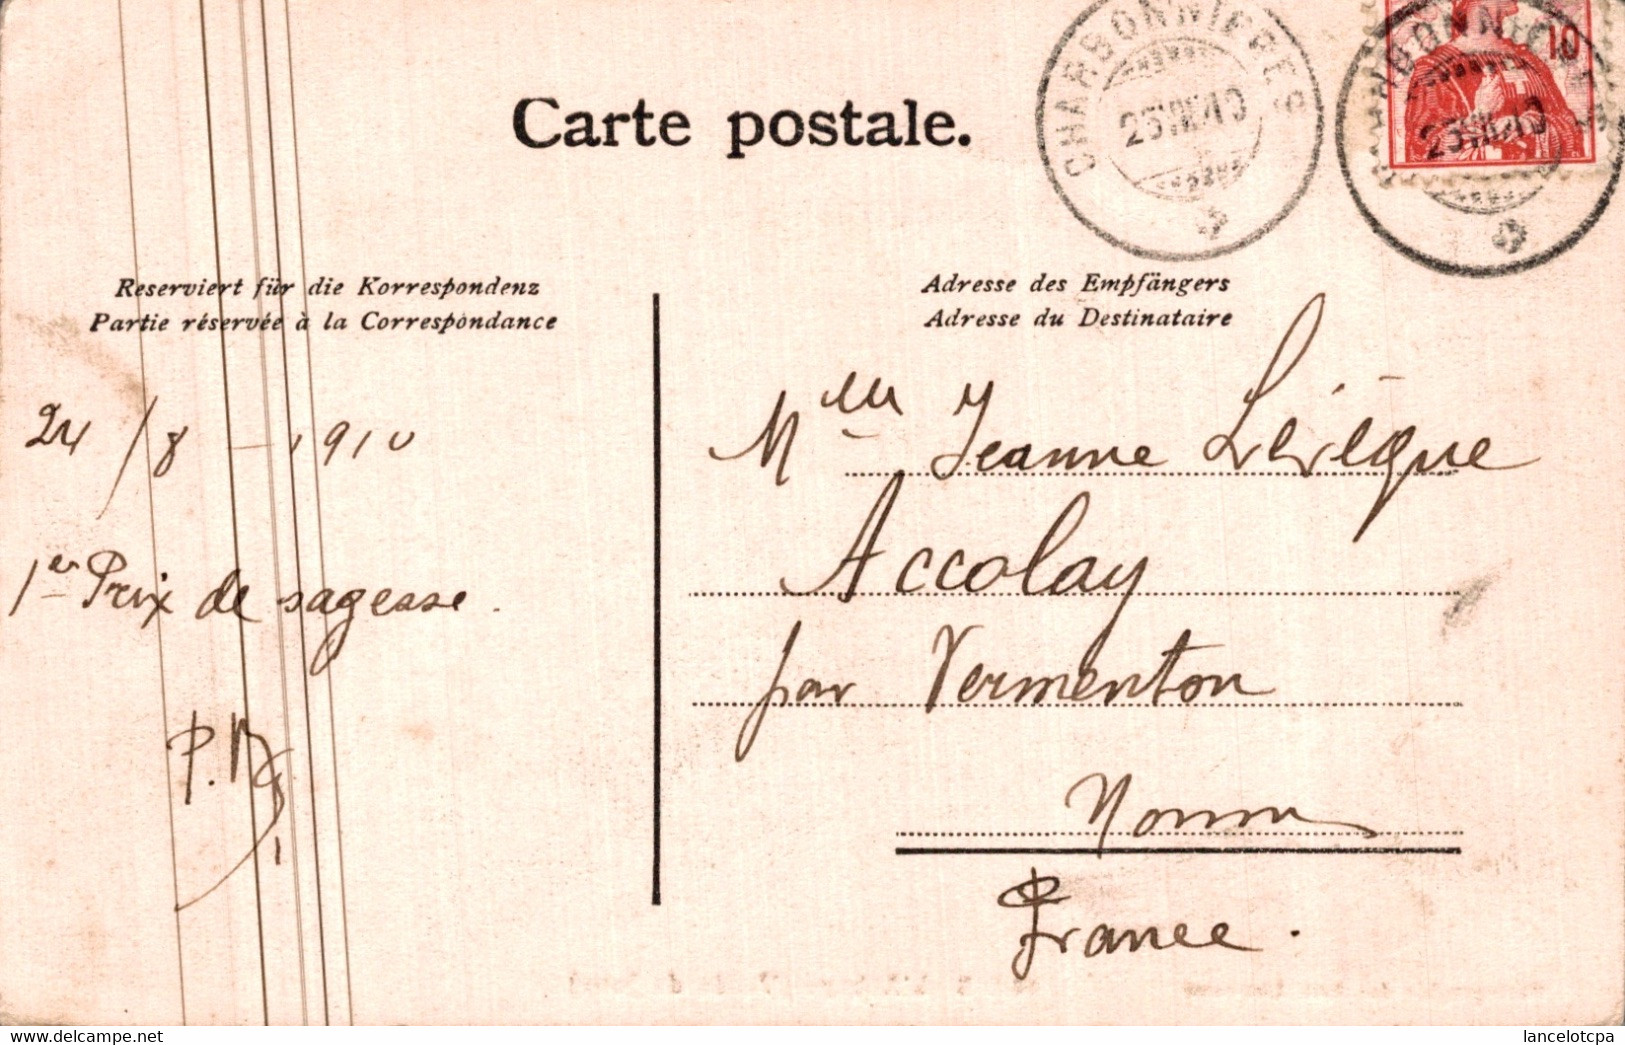 Carte postale.
CHARBONNIÈRES
25.VIII.10
10
CHARBONNIÈRES
25.VIII.10
Reserviert für die Korrespondenz
Partie réservée à la Correspondance
Adresse des Empfängers
Adresse du Destinataire
24/8 - 1910
1er Prix de sagesse.
Mlle Jeanne Lévêque
Accolay
par Vermenton
Yonne
France.
delcampe.net
lancelotcpa